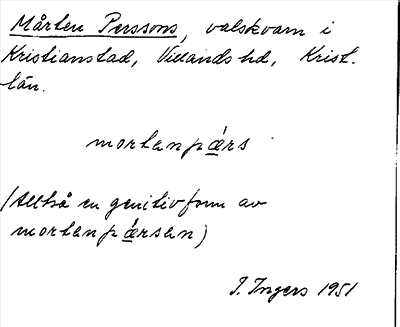 Mårten Perssons, valskvarn i
Kristianstad, Villands hd, Krist.
län.
mortanpǽrs
(Alltså en genitivform av
mortanpǽrsan)
I. Ingers 1951